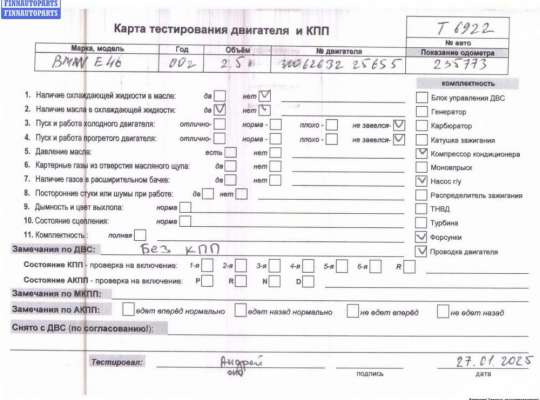 FINNAUTOPARTS
FINNAUTOPARTS
Карта тестирования двигателя и КПП
Т 6922
№ авто
Марка, модель Год Объём № двигателя Показание одометра
BMW E46 002 2.5 i 30062632 25655 235773
комплектность
1. Наличие охлаждающей жидкости в масле: да нет
2. Наличие масла в охлаждающей жидкости: да нет
3. Пуск и работа холодного двигателя: отлично- норма - плохо - не завелся-
4. Пуск и работа прогретого двигателя: отлично- норма - плохо - не завелся-
5. Давление масла: есть нет
6. Картерные газы из отверстия масляного щупа: да нет
7. Наличие газов в расширительном бачке: да нет
8. Посторонние стуки или шумы при работе: да нет
9. Дымность и цвет выхлопа: норма
10. Состояние сцепления: норма
11. Комплектность: полная
Блок управления ДВС
Генератор
Карбюратор
Катушка зажигания
Компрессор кондиционера
Моновпрыск
Насос г/у
Распределитель зажигания
ТНВД
Турбина
Форсунки
Проводка двигателя
Замечания по ДВС: Без КПП
Состояние КПП - проверка на включение: 1-я 2-я 3-я 4-я 5-я 6-я R
Состояние АКПП - проверка на включение: P R N D
Замечания по МКПП:
Замечания по АКПП: едет вперёд нормально едет назад нормально не едет вперёд не едет назад
Снято с ДВС (по согласованию!):
Тестировал: Андрей 27.01.2025
ФИО подпись дата